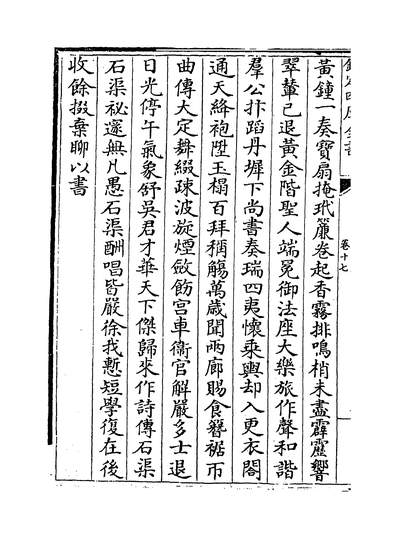 欽定四庫全書
卷十七
黃鐘一奏寳扇掩玳簾卷起香霧排鳴梢未盡霹靂響
翠輦已退黃金階聖人端冕御法座大樂旅作聲和諧
羣公抃蹈丹墀下尚書奏瑞四夷懷乗輿却入更衣閣
通天絳袍陞玉榻百拜稱觴萬歳聞兩廊賜食簪裾帀
曲傳大定舞綴疎波旋煙斂飭宫車衛官解嚴多士退
日光停午氣象舒吳君才華天下傑歸來作詩傳石渠
石渠祕邃無凡愚石渠酬唱皆嚴徐我慙短學復在後
收餘掇棄聊以書